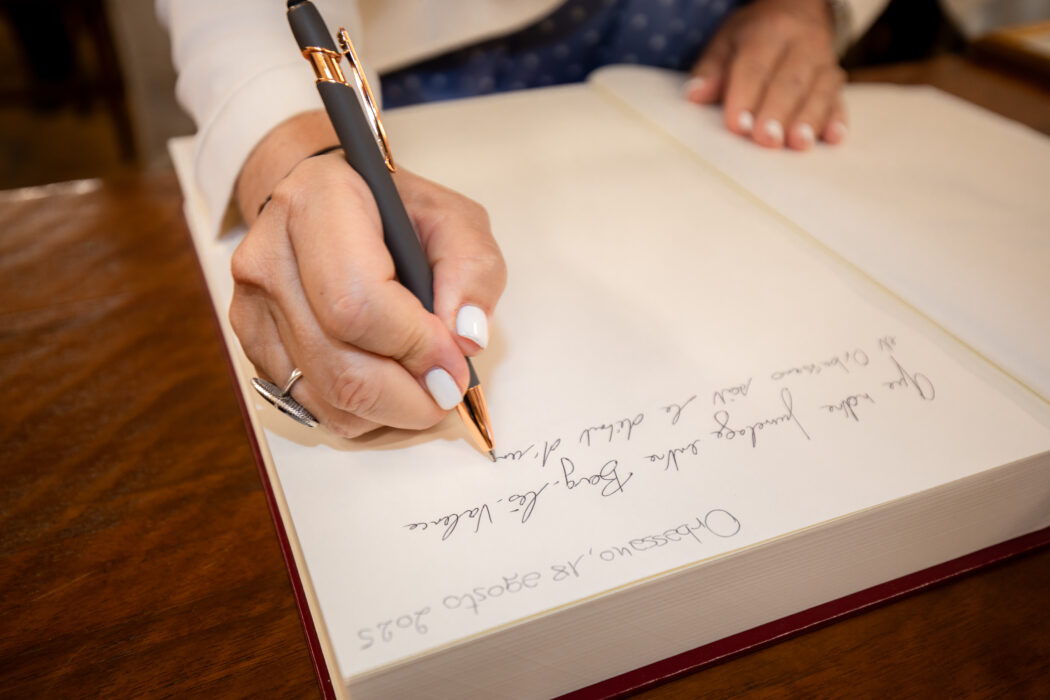 Orbassano, 18 agosto 2025
Que notre jumelage entre Bourg-lès-Valence
et Orbassano soit le début d'un